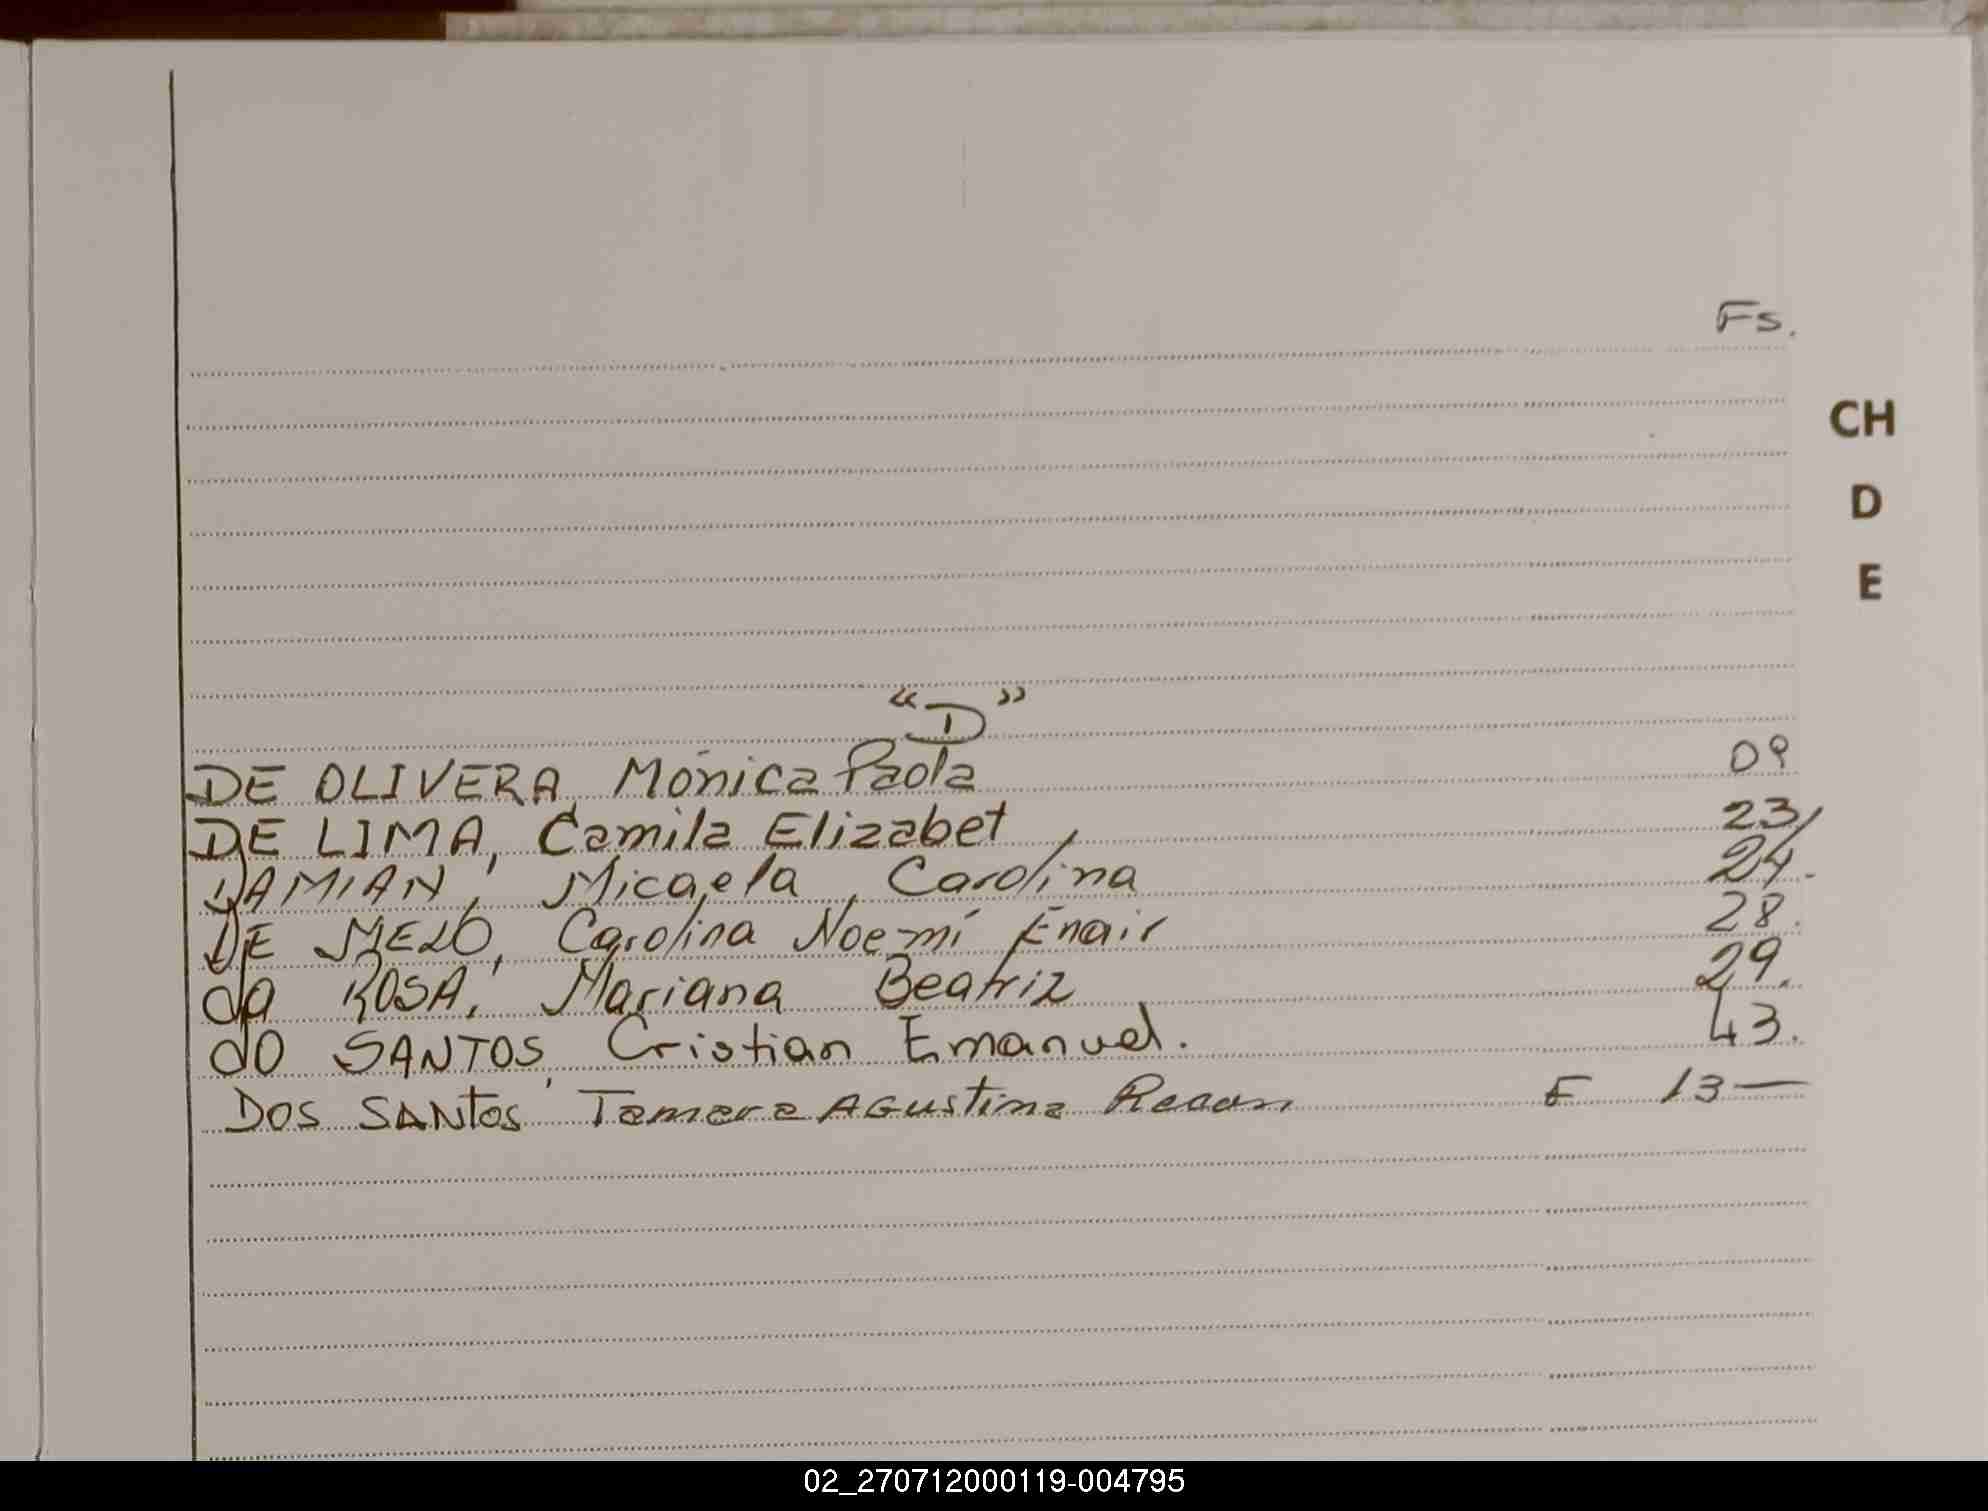 Fs.
CH
D
E
“D”
DE OLIVERA, Mónica Paola 09
DE LIMA, Camila Elizabet 23
DAMIAN, Micaela, Carolina 24.
DE MELO, Carolina Noemí Enair 28.
da ROSA, Mariana Beatriz 29.
do SANTOS, Cristian Emanuel. 43.
DOS SANTOS Tamara AGustina F 13—
02_270712000119-004795